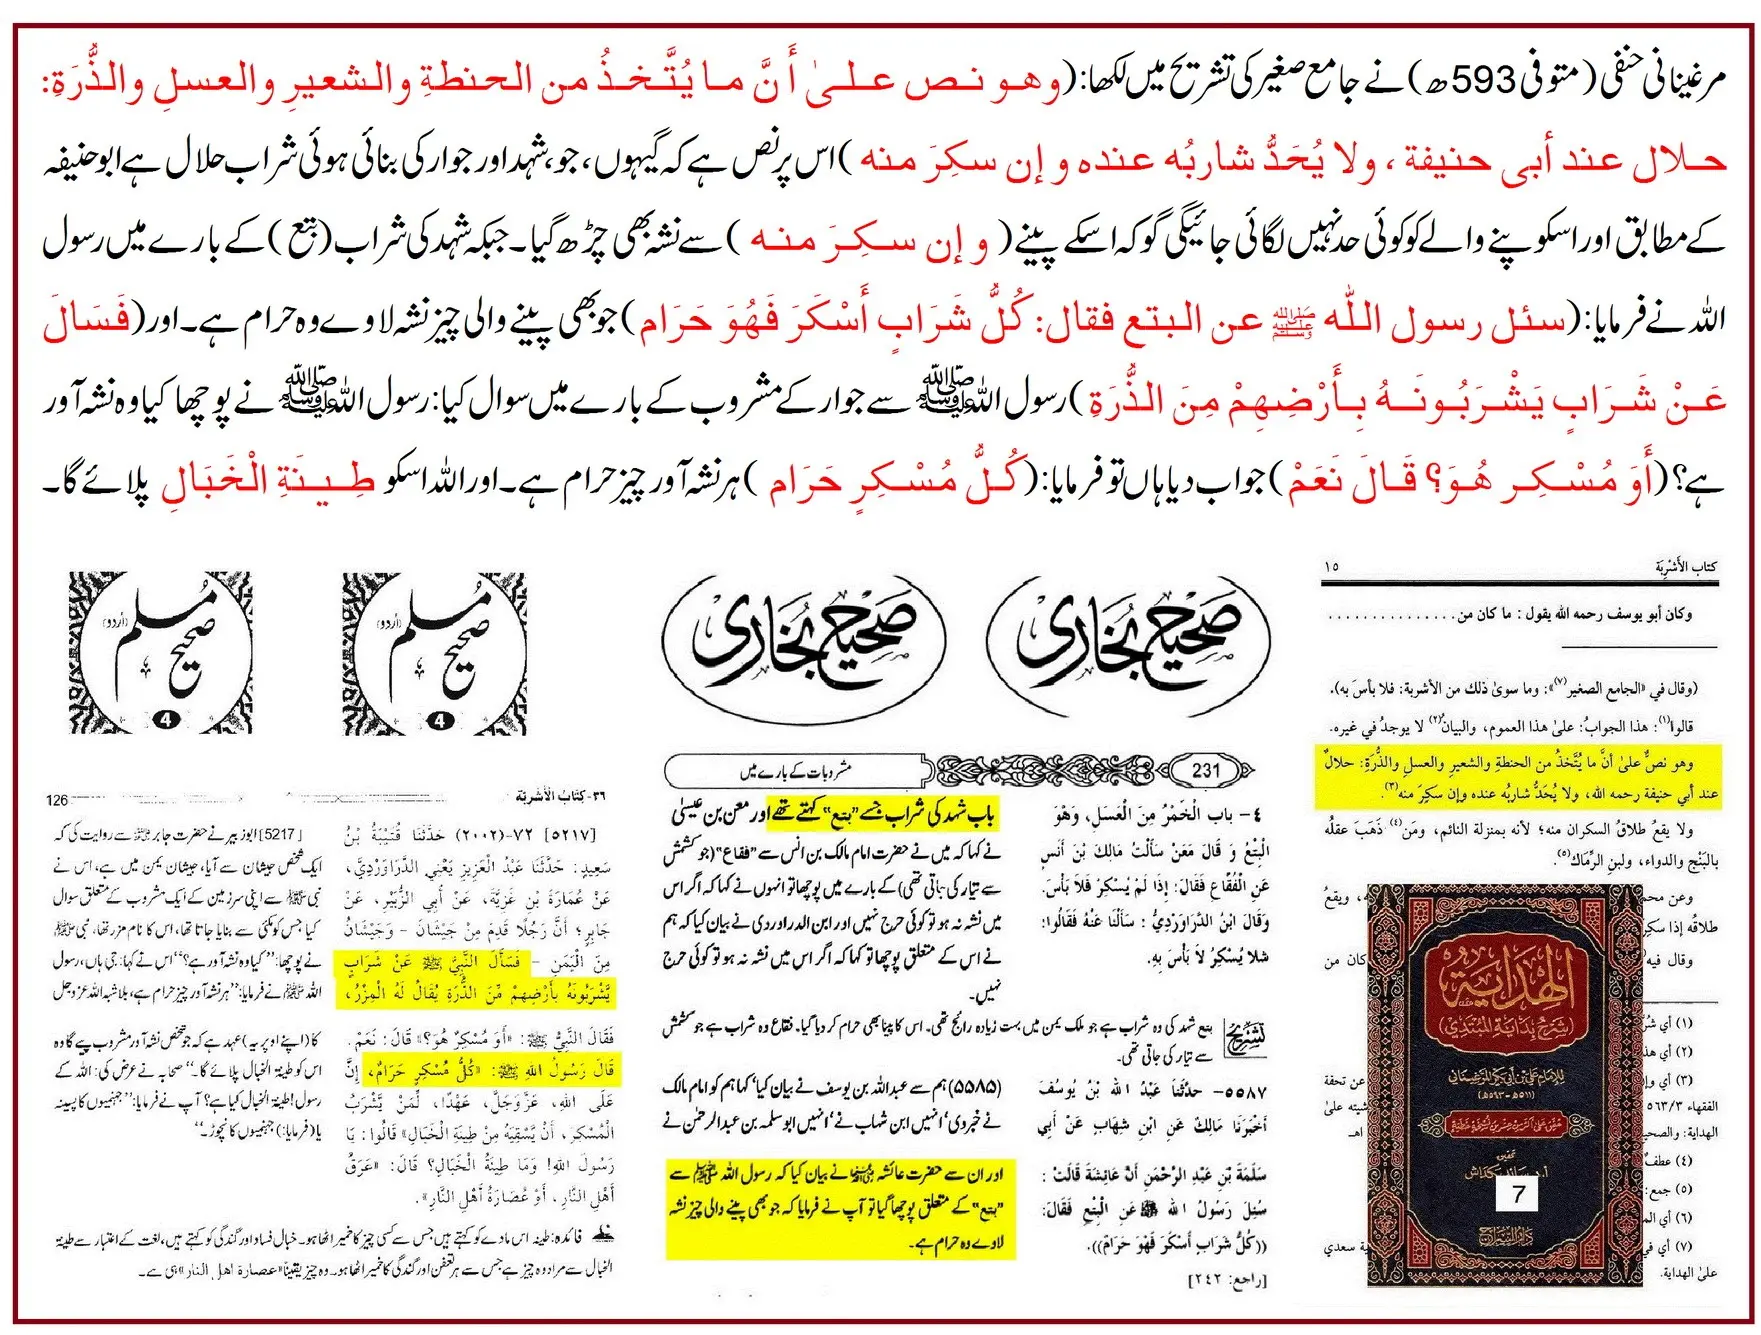 مرغینانی حنفی (متوفی 593ھ) نے جامع صغیر کی تشریح میں لکھا: (وهو نص على أَنَّ ما يُتَّخذُ من الحنطةِ والشعيرِ والعسلِ والذُّرَةِ:
حلال عند أبى حنيفة ، ولا يُحَدُّ شاربُه عنده و إن سكِرَ منه) اس پر نص ہے کہ گیہوں، جو، شہد اور جوار کی بنائی ہوئی شراب حلال ہے ابو حنیفہ
کے مطابق اور اسکو پنے والے کو کوئی حد نہیں لگائی جائیگی گو کہ اسکے پینے (و إن سكِرَ منه) سے نشہ بھی چڑھ گیا۔ جبکہ شہد کی شراب (بتع) کے بارے میں رسول
اللہ نے فرمایا: (سئل رسول اللّٰه ﷺ عن البتع فقال: كُلُّ شَرَابٍ أَسْكَرَ فَهُوَ حَرَام) جو بھی پینے والی چیز نشہ لاوے وہ حرام ہے۔ اور (فَسَالَ
عَنْ شَرَابٍ يَشْرَبُونَهُ بِأَرْضِهِمْ مِنَ الذُّرَةِ) رسول اللہ ﷺ سے جوار کے مشروب کے بارے میں سوال کیا: رسول اللہ ﷺ نے پوچھا کیا وہ نشہ آور
ہے؟ (أَوَ مُسْكِر هُوَ؟ قَالَ نَعَمْ) جواب دیا ہاں تو فرمایا: (كُلُّ مُسْكِرٍ حَرَام) ہر نشہ آور چیز حرام ہے۔ اور اللہ اسکو طِينَةِ الْخَبَالِ پلائے گا۔
صحیح مسلم (اُردو)
4
صحیح مسلم (اُردو)
4
صحیح بخاری
صحیح بخاری
كتاب الأشْرِبَة ١٥
وكان أبو يوسف رحمه الله يقول : ما كان من...............
(وقال في «الجامع الصغير(٧)»: وما سوىٰ ذلك من الأشربة: فلا بأسَ به).
قالوا(١): هذا الجوابُ: علىٰ هذا العموم، والبيانُ(٢) لا يوجدُ في غيره.
وهو نصٌّ علىٰ أنَّ ما يُتَّخذُ من الحنطةِ والشعيرِ والعسلِ والذُّرَةِ: حلالٌ
عند أبي حنيفة رحمه الله، ولا يُحَدُّ شاربُه عنده وإن سكِرَ منه(٣).
ولا يقعُ طلاقُ السكران منه؛ لأنه بمنزلة النائم، ومَن(٤) ذَهَبَ عقلُه
بالبَنْج والدواء، ولبنِ الرِّماك(٥).
وعن محمد
، ويقعُ
طلاقُه إذا سكِر
وقال فيه
كان من
(١) أي
(٢) أي هذا
(٣) أي
عن تحفة
الفقهاء ٥٦٣/٣
شيته علىٰ
الهداية: والصحيح
اهـ
(٤) عطف
(٥) جمع:
(٦) أي
(٧) أي في
ية سعدي
علىٰ الهداية.
الهداية
شرح بداية المبتدي
للإمام علي بن أبي بكر المرغيناني
(٥١١هـ - ٥٩٣هـ)
تحقيق
أ. د. سائد بكداش
7
دار السراج
مشروبات کے بارے میں
231
باب شہد کی شراب جسے "بتع" کہتے تھے اور معن بن عیسیٰ
نے کہا کہ میں نے حضرت امام مالک بن انس سے "فقاع" (جو کشمش
سے تیار کی جاتی تھی) کے بارے میں پوچھا تو انہوں نے کہا کہ اگر اس
میں نشہ نہ ہو تو کوئی حرج نہیں اور ابن الدراوردی نے بیان کیا کہ ہم
نے اس کے متعلق پوچھا تو کہا کہ اگر اس میں نشہ نہ ہو تو کوئی حرج
نہیں۔
٤- باب الْخَمْرُ مِنَ الْعَسَلِ، وَهْوَ
الْبِتْعُ وَ قَالَ مَعْنٌ سَأَلْتُ مَالِكَ بْنَ أَنَسٍ
عَنِ الْفُقَّاعِ فَقَالَ: إِذَا لَمْ يُسْكِرْ فَلاَ بَأْسَ.
وَقَالَ ابْنُ الدَّرَاوَرْدِيِّ : سَأَلْنَا عَنْهُ فَقَالُوا:
لاَ يُسْكِرُ لاَ بَأْسَ بِهِ.
تشریح
بتع شہد کی وہ شراب ہے جو ملک یمن میں بہت زیادہ رائج تھی۔ اس کا پینا بھی حرام کر دیا گیا۔ فقاع وہ شراب ہے جو کشمش
سے تیار کی جاتی تھی۔
(۵۵۸۵) ہم سے عبد اللہ بن یوسف نے بیان کیا' کہا ہم کو امام مالک
نے خبر دی' انہیں ابن شہاب نے' انہیں ابو سلمہ بن عبد الرحمٰن نے
اور ان سے حضرت عائشہ رضی اللہ عنہا نے بیان کیا کہ رسول اللہ ﷺ سے
"بتع" کے متعلق پوچھا گیا تو آپ نے فرمایا کہ جو بھی پینے والی چیز نشہ
لاوے وہ حرام ہے۔
٥٥٨٧- حدَّثَنَا عَبْدُ الله بْنُ يُوسُفَ
أَخْبَرَنَا مَالِكٌ عَنِ ابْنِ شِهَابٍ عَنْ أَبِي
سَلَمَةَ بْنِ عَبْدِ الرَّحْمَنِ أَنَّ عَائِشَةَ قَالَتْ :
سُئِلَ رَسُولُ الله ﷺ عَنِ الْبِتْعِ فَقَالَ:
((كُلُّ شَرَابٍ أَسْكَرَ فَهْوَ حَرَامٌ)).
[راجع: ٢٤٢]
٣٦-كِتَابُ الأَشْرِبَةِ
126
[٥٢١٧] ٧٢-(٢٠٠٢) حَدَّثَنَا قُتَيْبَةُ بْنُ
سَعِيدٍ: حَدَّثَنَا عَبْدُ الْعَزِيزِ يَعْنِي الدَّرَاوَرْدِيَّ،
عَنْ عُمَارَةَ بْنِ غَزِيَّةَ، عَنْ أَبِي الزُّبَيْرِ، عَنْ
جَابِرٍ؛ أَنَّ رَجُلًا قَدِمَ مِنْ جَيْشَانَ - وَجَيْشَانُ
مِنَ الْيَمَنِ - فَسَأَلَ النَّبِيَّ ﷺ عَنْ شَرَابٍ
يَشْرَبُونَهُ بِأَرْضِهِمْ مِّنَ الذُّرَةِ يُقَالُ لَهُ الْمِزْرُ،
فَقَالَ النَّبِيُّ ﷺ: «أَوَ مُسْكِرٌ هُوَ؟» قَالَ: نَعَمْ.
قَالَ رَسُولُ اللهِ ﷺ: «كُلُّ مُسْكِرٍ حَرَامٌ، إِنَّ
عَلَى اللهِ، عَزَّوَجَلَّ، عَهْدًا، لِّمَنْ يَّشْرَبُ
الْمُسْكِرَ، أَنْ يَّسْقِيَهُ مِنْ طِينَةِ الْخَبَالِ» قَالُوا: يَا
رَسُولَ اللهِ! وَمَا طِينَةُ الْخَبَالِ؟ قَالَ: «عَرَقُ
أَهْلِ النَّارِ، أَوْ عُصَارَةُ أَهْلِ النَّارِ».
[5217] ابوزبیر نے حضرت جابر رضی اللہ عنہ سے روایت کی کہ
ایک شخص جیشان سے آیا، جیشان یمن میں ہے، اس نے
نبی ﷺ سے اپنی سرزمین کے ایک مشروب کے متعلق سوال
کیا جس کو مکئی سے بنایا جاتا تھا، اس کا نام مزر تھا، نبی ﷺ
نے پوچھا: "کیا وہ نشہ آور ہے؟" اس نے کہا: جی ہاں، رسول
اللہ ﷺ نے فرمایا: "ہر نشہ آور چیز حرام ہے، بلاشبہ اللہ عزوجل
کا (اپنے اوپر یہ) عہد ہے کہ جو شخص نشہ آور مشروب پیے گا وہ
اس کو طینۃ الخبال پلائے گا۔" صحابہ نے عرض کی: اللہ کے
رسول! طینۃ الخبال کیا ہے؟ آپ نے فرمایا: "جہنمیوں کا پسینہ
یا (فرمایا:) جہنمیوں کا نچوڑ۔"
فائدہ: طینہ اس مادے کو کہتے ہیں جس سے کسی چیز کا خمیر اٹھا ہو۔ خبال فساد اور گندگی کو کہتے ہیں، لغت کے اعتبار سے طینۃ
الخبال سے مراد وہ چیز ہے جس سے ہر تعفن اور گندگی کا خمیر اٹھا ہو۔ وہ چیز یقیناً «عصارة اهل النار» ہی ہے۔